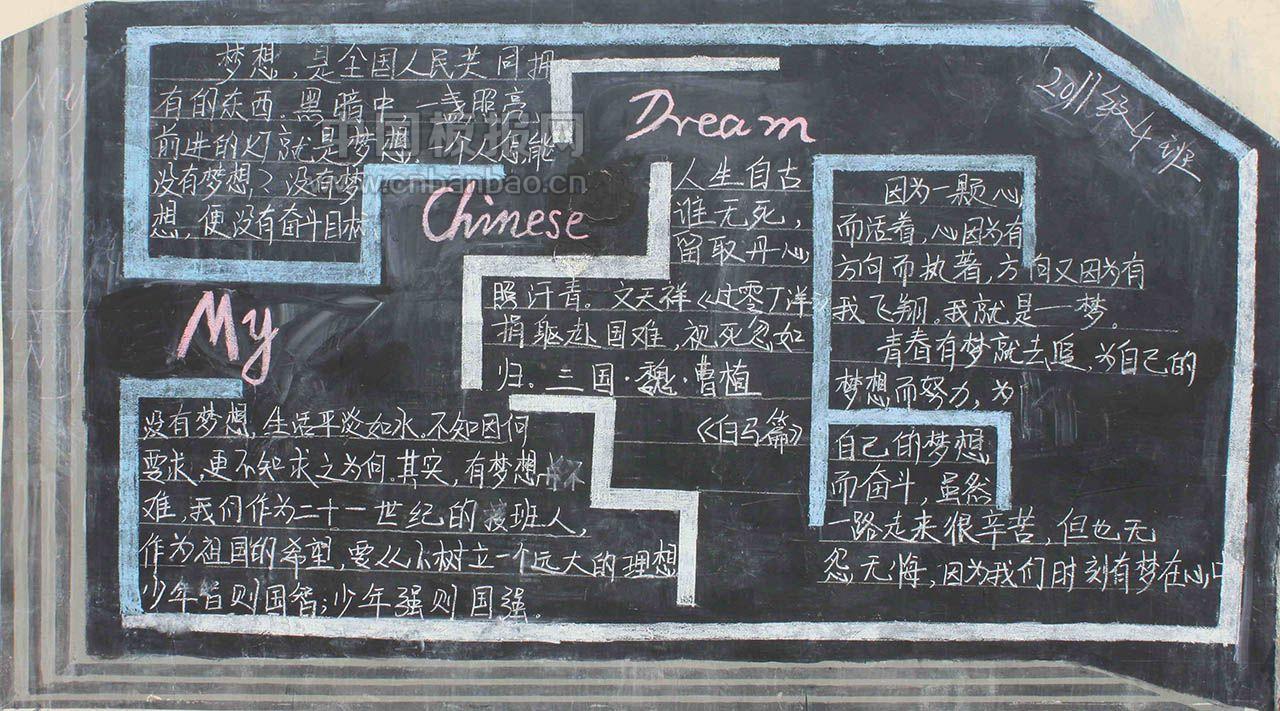 梦想，是全国人民共同拥
有的东西。黑暗中，一盏照亮
前进的灯就是梦想，一个人怎能
没有梦想？没有梦
想，便没有奋斗目标
中国板报网
www.cnbanbao.cn
My
Chinese
Dream
2011级4班
没有梦想，生活平淡如水。不知因何
要求，更不知求之为何。其实，有梦想不
难，我们作为二十一世纪的接班人，
作为祖国的希望，要从小树立一个远大的理想
少年智则国智；少年强则国强。
人生自古
谁无死，
留取丹心
照汗青。文天祥《过零丁洋》
捐躯赴国难，视死忽如
归。三国·魏·曹植
《白马篇》
因为一颗心
而活着，心因为有
方向而执着，方向又因为有
我飞翔。我就是一梦。
青春有梦就去追，为自己的
梦想而努力，为
自己的梦想
而奋斗，虽然
一路走来很辛苦，但也无
怨无悔，因为我们时刻有梦在心中